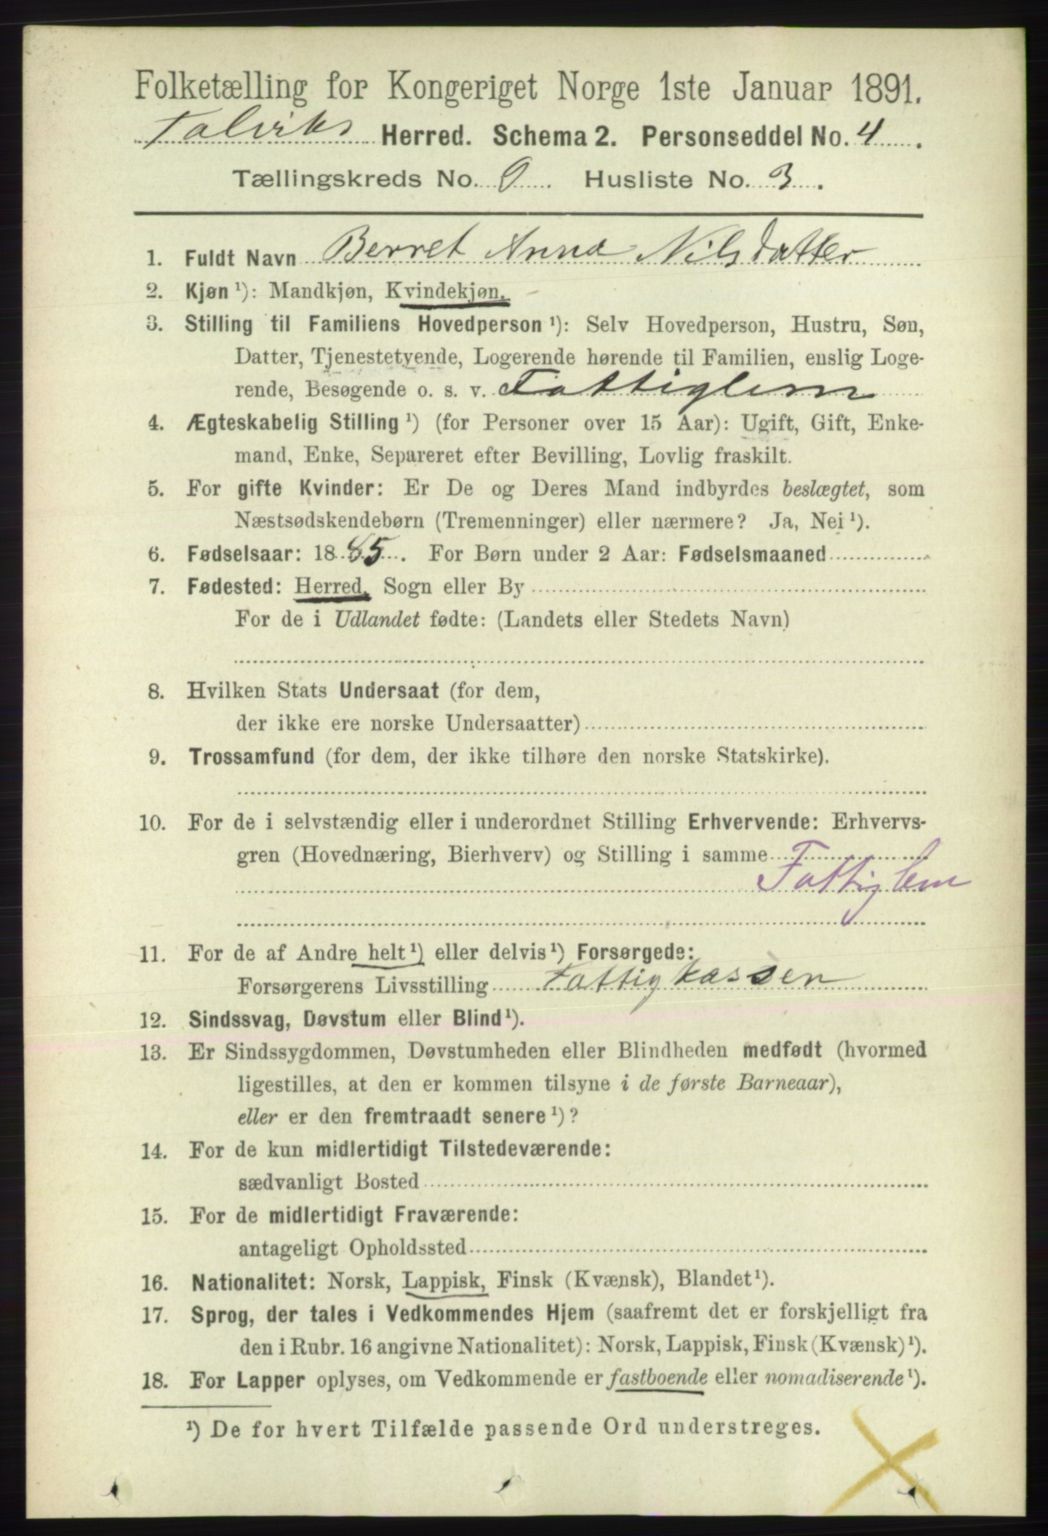 Folketælling for Kongeriget Norge 1ste Januar 1891.
Talviks Herred. Schema 2. Personseddel No. 4.
Tællingskreds No. 9. Husliste No. 3.
1. Fuldt Navn Berret Anna Nilsdatter
2. Kjøn ¹): Mandkjøn, Kvindekjøn.
3. Stilling til Familiens Hovedperson ¹): Selv Hovedperson, Hustru, Søn,
Datter, Tjenestetyende, Logerende hørende til Familien, enslig Loge-
rende, Besøgende o. s. v. Fattiglem
4. Ægteskabelig Stilling ¹) (for Personer over 15 Aar): Ugift, Gift, Enke-
mand, Enke, Separeret efter Bevilling, Lovlig fraskilt.
5. For gifte Kvinder: Er De og Deres Mand indbyrdes beslægtet, som
Næstsødskendebørn (Tremenninger) eller nærmere? Ja, Nei ¹).
6. Fødselsaar: 1885. For Børn under 2 Aar: Fødselsmaaned
7. Fødested: Herred, Sogn eller By
For de i Udlandet fødte: (Landets eller Stedets Navn)
8. Hvilken Stats Undersaat (for dem,
der ikke ere norske Undersaatter)
9. Trossamfund (for dem, der ikke tilhøre den norske Statskirke).
10. For de i selvstændig eller i underordnet Stilling Erhvervende: Erhvervs-
gren (Hovednæring, Bierhverv) og Stilling i samme
Fattiglem
11. For de af Andre helt ¹) eller delvis ¹) Forsørgede:
Forsørgerens Livsstilling Fattigkassen
12. Sindssvag, Døvstum eller Blind ¹).
13. Er Sindssygdommen, Døvstumheden eller Blindheden medfødt (hvormed
ligestilles, at den er kommen tilsyne i de første Barneaar),
eller er den fremtraadt senere ¹)?
14. For de kun midlertidigt Tilstedeværende:
sædvanligt Bosted
15. For de midlertidigt Fraværende:
antageligt Opholdssted
16. Nationalitet: Norsk, Lappisk, Finsk (Kvænsk), Blandet ¹).
17. Sprog, der tales i Vedkommendes Hjem (saafremt det er forskjelligt fra
den i Rubr. 16 angivne Nationalitet): Norsk, Lappisk, Finsk (Kvænsk) ¹).
18. For Lapper oplyses, om Vedkommende er fastboende eller nomadiserende ¹).
¹) De for hvert Tilfælde passende Ord understreges.